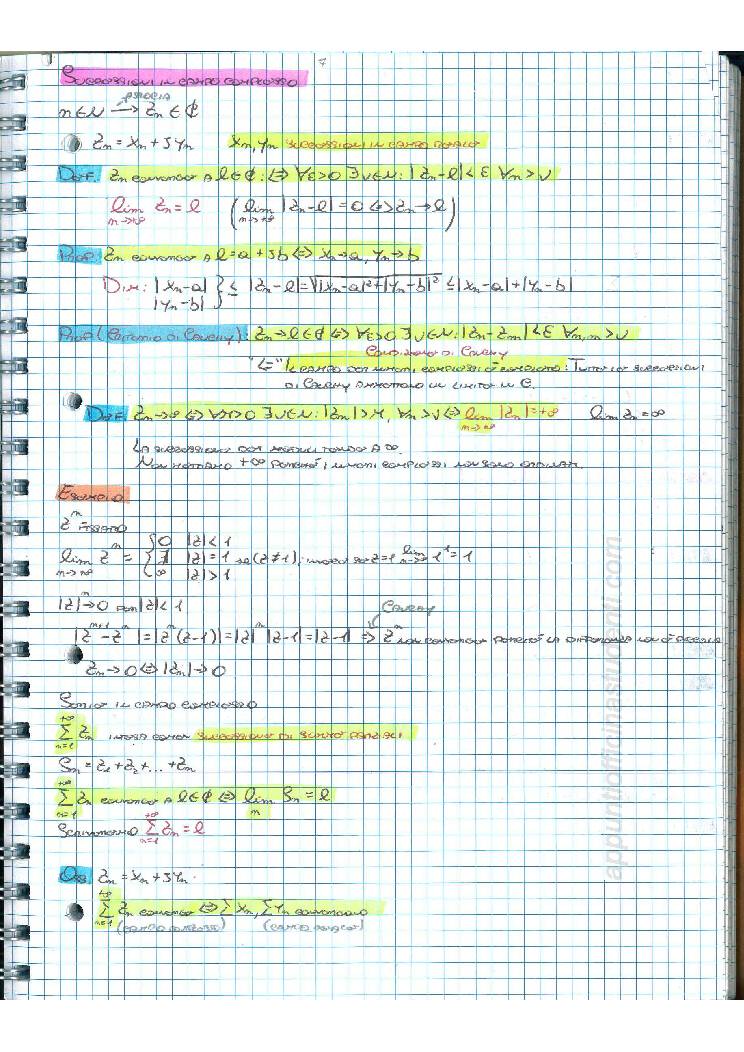 1
SUCCESSIONI IN CAMPO COMPLESSO
ASSOCIA
n∈N → Zn ∈ ₵
Zn = Xn + JYn   Xn, Yn SUCCESSIONI IN CAMPO REALE
DEF: Zn CONVERGE A l∈₵ :⇔ ∀ε>0 ∃ν∈N: |Zn-l|<ε ∀n>ν
lim n→+∞ Zn = l   (lim n→+∞ |Zn-l| = 0 ⇔ Zn→l)
PROP: Zn CONVERGE A l = a + Jb ⇔ Xn→a, Yn→b
DIM: |Xn-a| |Yn-b| } ≤ |Zn-l| = √|Xn-a|²+|Yn-b|² ≤ |Xn-a|+|Yn-b|
PROP (CRITERIO DI CAUCHY): Zn→l∈₵ ⇔ ∀ε>0 ∃ν∈N: |Zn-Zm|<ε ∀n,m>ν
CONDIZIONE DI CAUCHY
"⇐" IL CAMPO DEI NUMERI COMPLESSI È COMPLETO: TUTTE LE SUCCESSIONI
DI CAUCHY AMMETTONO UN LIMITE IN C.
DEF: Zn→∞ ⇔ ∀M>0 ∃ν∈N: |Zn|>M, ∀n>ν ⇔ lim n→∞ |Zn| = +∞   lim Zn = ∞
LA SUCCESSIONE DEI MODULI TENDE A ∞.
NON METTIAMO +∞ PERCHÉ I NUMERI COMPLESSI NON SONO ORDINATI.
ESEMPIO
Zⁿ FISSATO
lim n→+∞ Zⁿ = { 0 |Z|<1
∄ |Z|=1 SE (Z≠1); INVECE SE Z=1 lim n→∞ 1ⁿ = 1
∞ |Z|>1
|Z|ⁿ→0 PER |Z|<1
CAUCHY
|Zⁿ⁺¹ - Zⁿ| = |Zⁿ(Z-1)| = |Z|ⁿ |Z-1| = |Z-1| ⇒ Zⁿ NON CONVERGE PERCHÉ LA DIFFERENZA NON È PICCOLA
Zn→0 ⇔ |Zn|→0
SERIE IN CAMPO COMPLESSO
+∞ Σ n=1 Zn INTESA COME SUCCESSIONE DI SOMME PARZIALI
Sn = Z1 + Z2 + ... + Zn
+∞ Σ n=1 Zn CONVERGE A l∈₵ ⇔ lim n Sn = l
SCRIVEREMO +∞ Σ n=1 Zn = l
OSS: Zn = Xn + JYn.
+∞ Σ n=1 Zn CONVERGE ⇔ ΣXn, ΣYn CONVERGONO
(CAMPO COMPLESSO)   (CAMPO REALE)
appuntiofficinastudenti.com